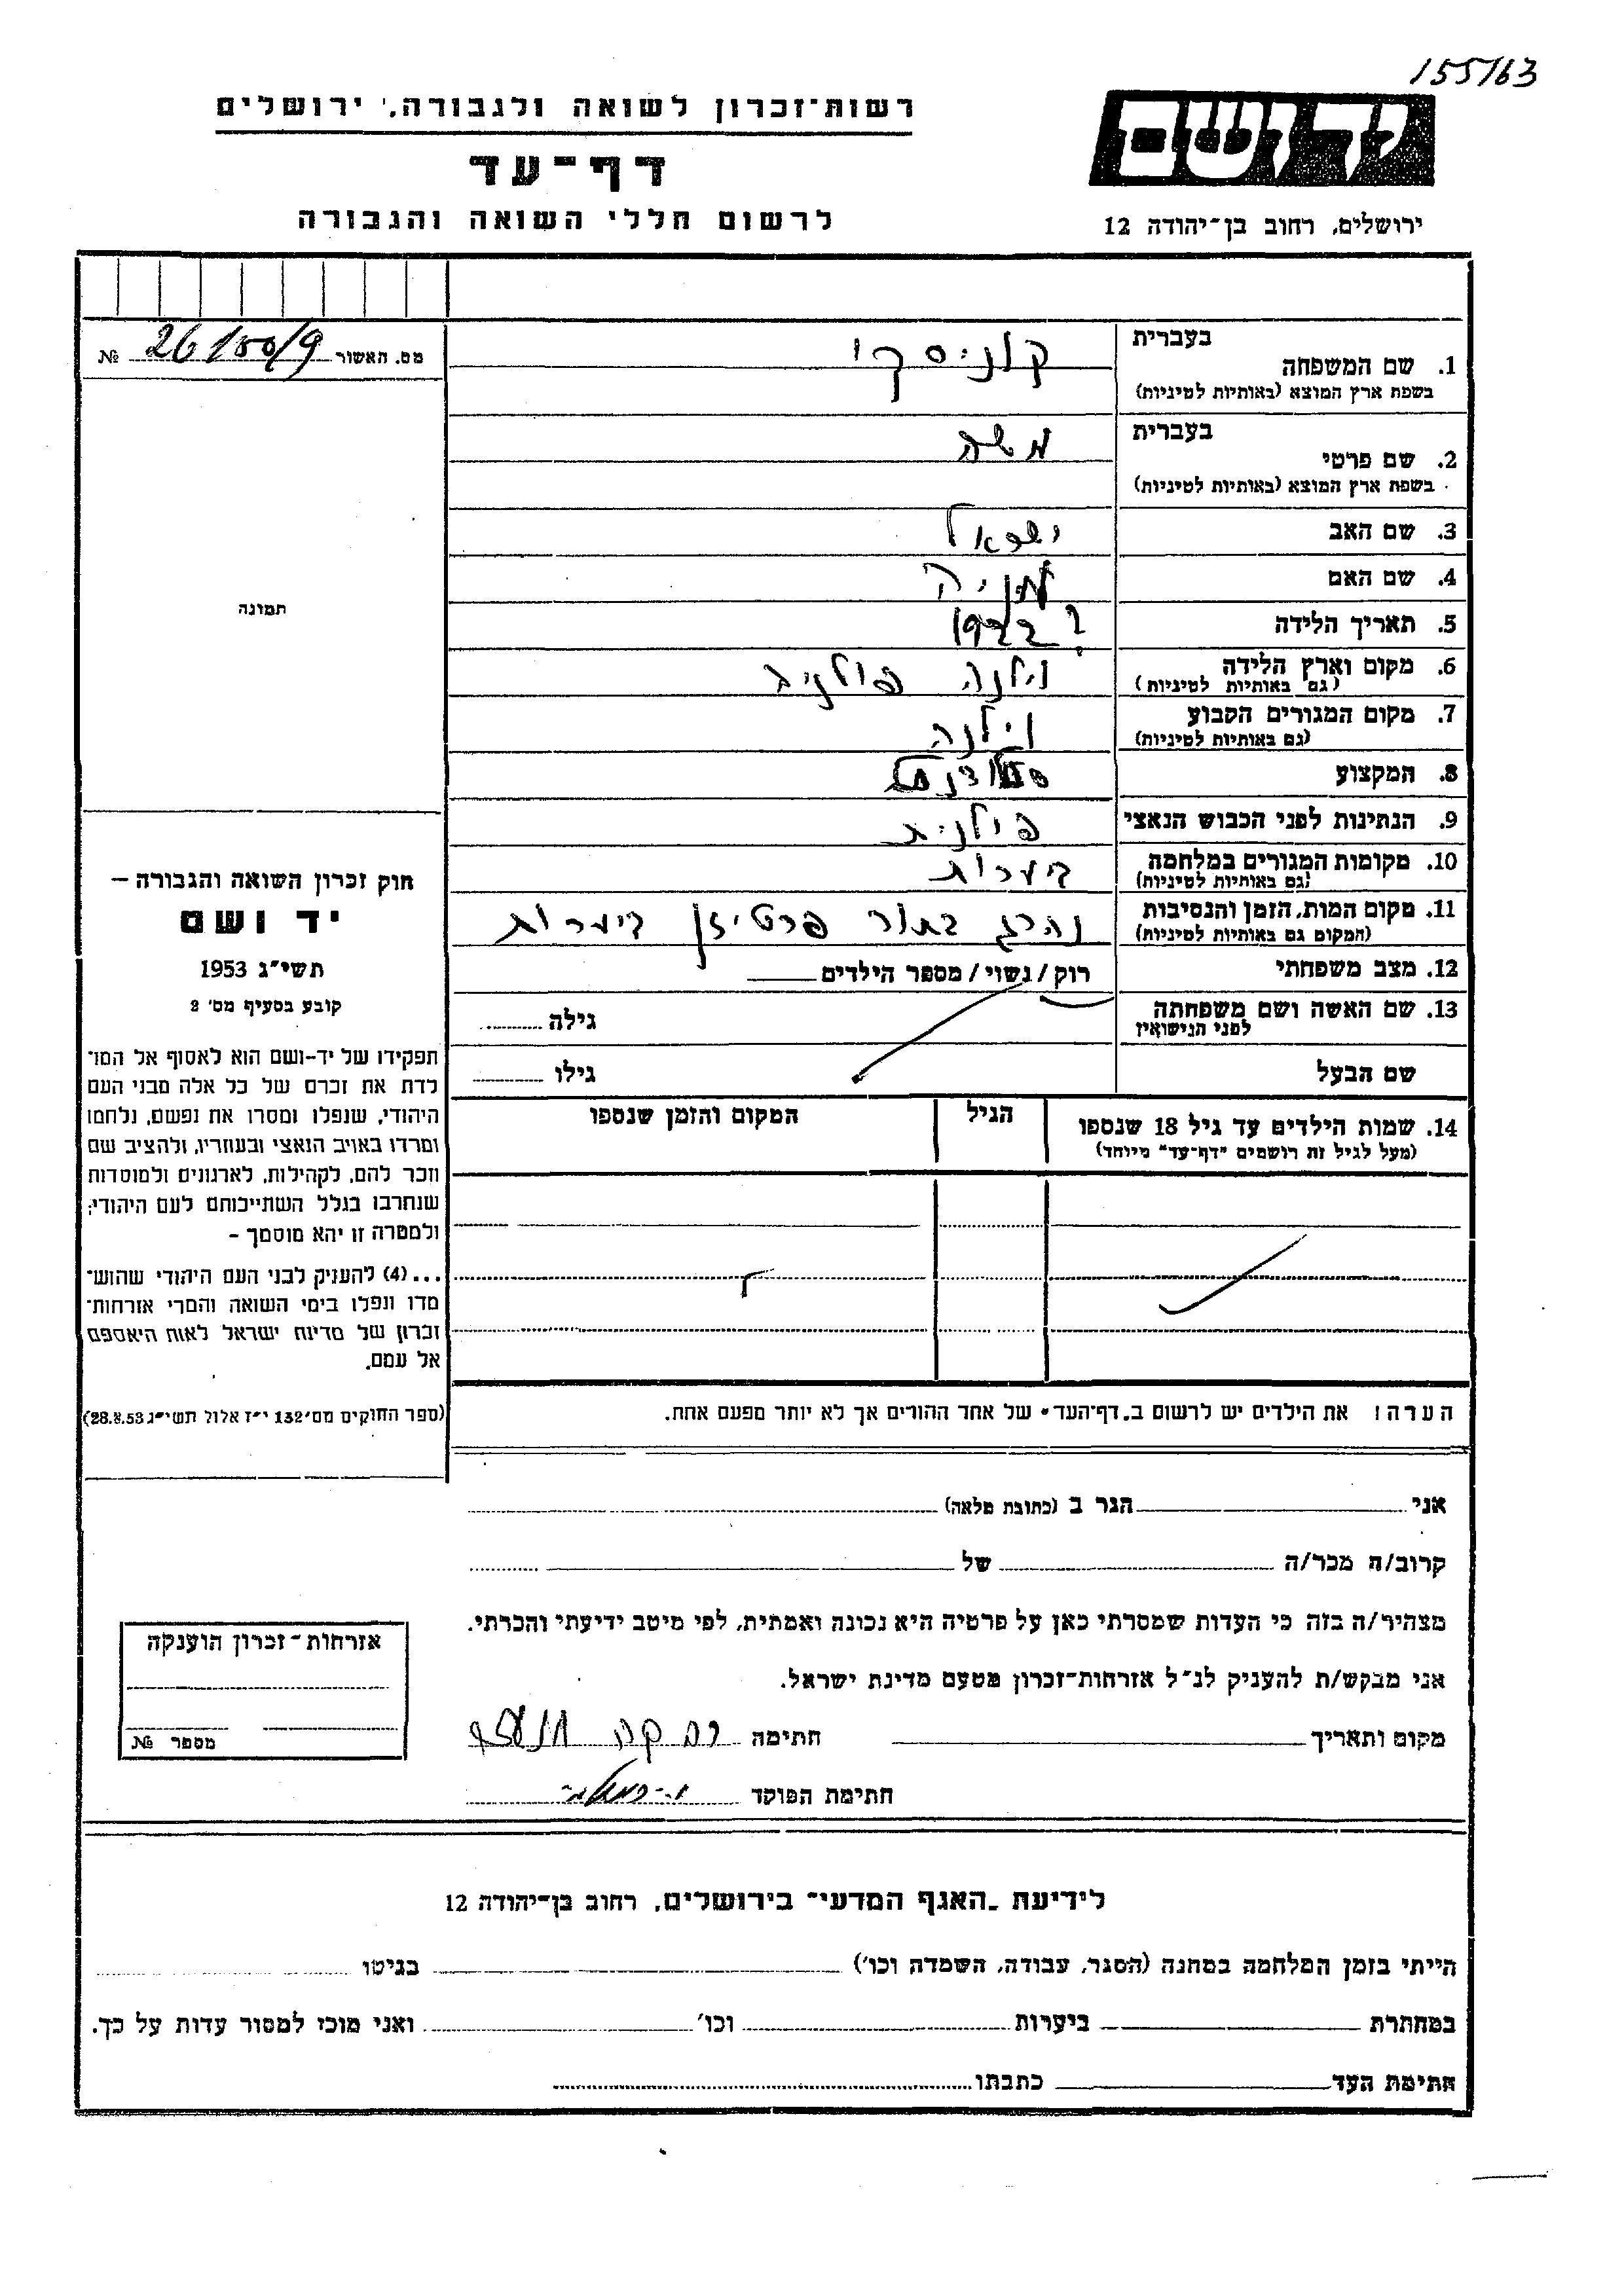 155/63
רשות־זכרון לשואה ולגבורה, ירושלים
יד ושם
דף־עד
לרשום חללי השואה והגבורה
ירושלים, רחוב בן־יהודה 12
מס. האשור 26/100/9 №
בעברית
1. שם המשפחה קלניסקי
בשפת ארץ המוצא (באותיות לטיניות)
בעברית
2. שם פרטי משה
בשפת ארץ המוצא (באותיות לטיניות)
3. שם האב ישראל
4. שם האם מניה
תמונה
5. תאריך הלידה 1922 ?
6. מקום וארץ הלידה וילנה פולניה
(גם באותיות לטיניות)
7. מקום המגורים הקבוע וילנה
(גם באותיות לטיניות)
8. המקצוע סטודנט
9. הנתינות לפני הכבוש הנאצי פולנית
10. מקומות המגורים במלחמה ביערות
(גם באותיות לטיניות)
11. מקום המות, הזמן והנסיבות נהרג בתור פרטיזן ביערות
(המקום גם באותיות לטיניות)
12. מצב משפחתי רוק / נשוי / מספר הילדים
13. שם האשה ושם משפחתה גילה
לפני הנישואין
שם הבעל גילו
14. שמות הילדים עד גיל 18 שנספו הגיל המקום והזמן שנספו
(מעל לגיל זה רושמים "דף־עד" מיוחד)
חוק זכרון השואה והגבורה —
יד ושם
תשי"ג 1953
קובע בסעיף מס' 2
תפקידו של יד-ושם הוא לאסוף אל המו־
לדת את זכרם של כל אלה מבני העם
היהודי, שנפלו ומסרו את נפשם, נלחמו
ומרדו באויב הנאצי ובעוזריו, ולהציב שם
וזכר להם, לקהילות, לארגונים ולמוסדות
שנחרבו בגלל השתייכותם לעם היהודי;
ולמטרה זו יהא מוסמך –
...(4) להעניק לבני העם היהודי שהוש־
מדו ונפלו בימי השואה והמרי אזרחות־
זכרון של מדינת ישראל לאות היאספם
אל עמם.
(ספר החוקים מס' 132 י"ז אלול תשי"ג 28.8.53)
הערה: את הילדים יש לרשום ב"דף־העד" של אחד ההורים אך לא יותר מפעם אחת.
אני הגר ב (כתובת מלאה)
קרוב/ה מכר/ה של
מצהיר/ה בזה כי העדות שמסרתי כאן על פרטיה היא נכונה ואמתית, לפי מיטב ידיעתי והכרתי.
אני מבקש/ת להעניק לנ"ל אזרחות־זכרון מטעם מדינת ישראל.
מקום ותאריך חתימה רבקה
חתימת הפוקד
אזרחות־זכרון הוענקה
מספר №
לידיעת "האגף המדעי" בירושלים, רחוב בן־יהודה 12
הייתי בזמן המלחמה במחנה (הסגר, עבודה, השמדה וכו') בגיטו
במחתרת ביערות וכו' ואני מוכן למסור עדות על כך.
חתימת העד כתבתו